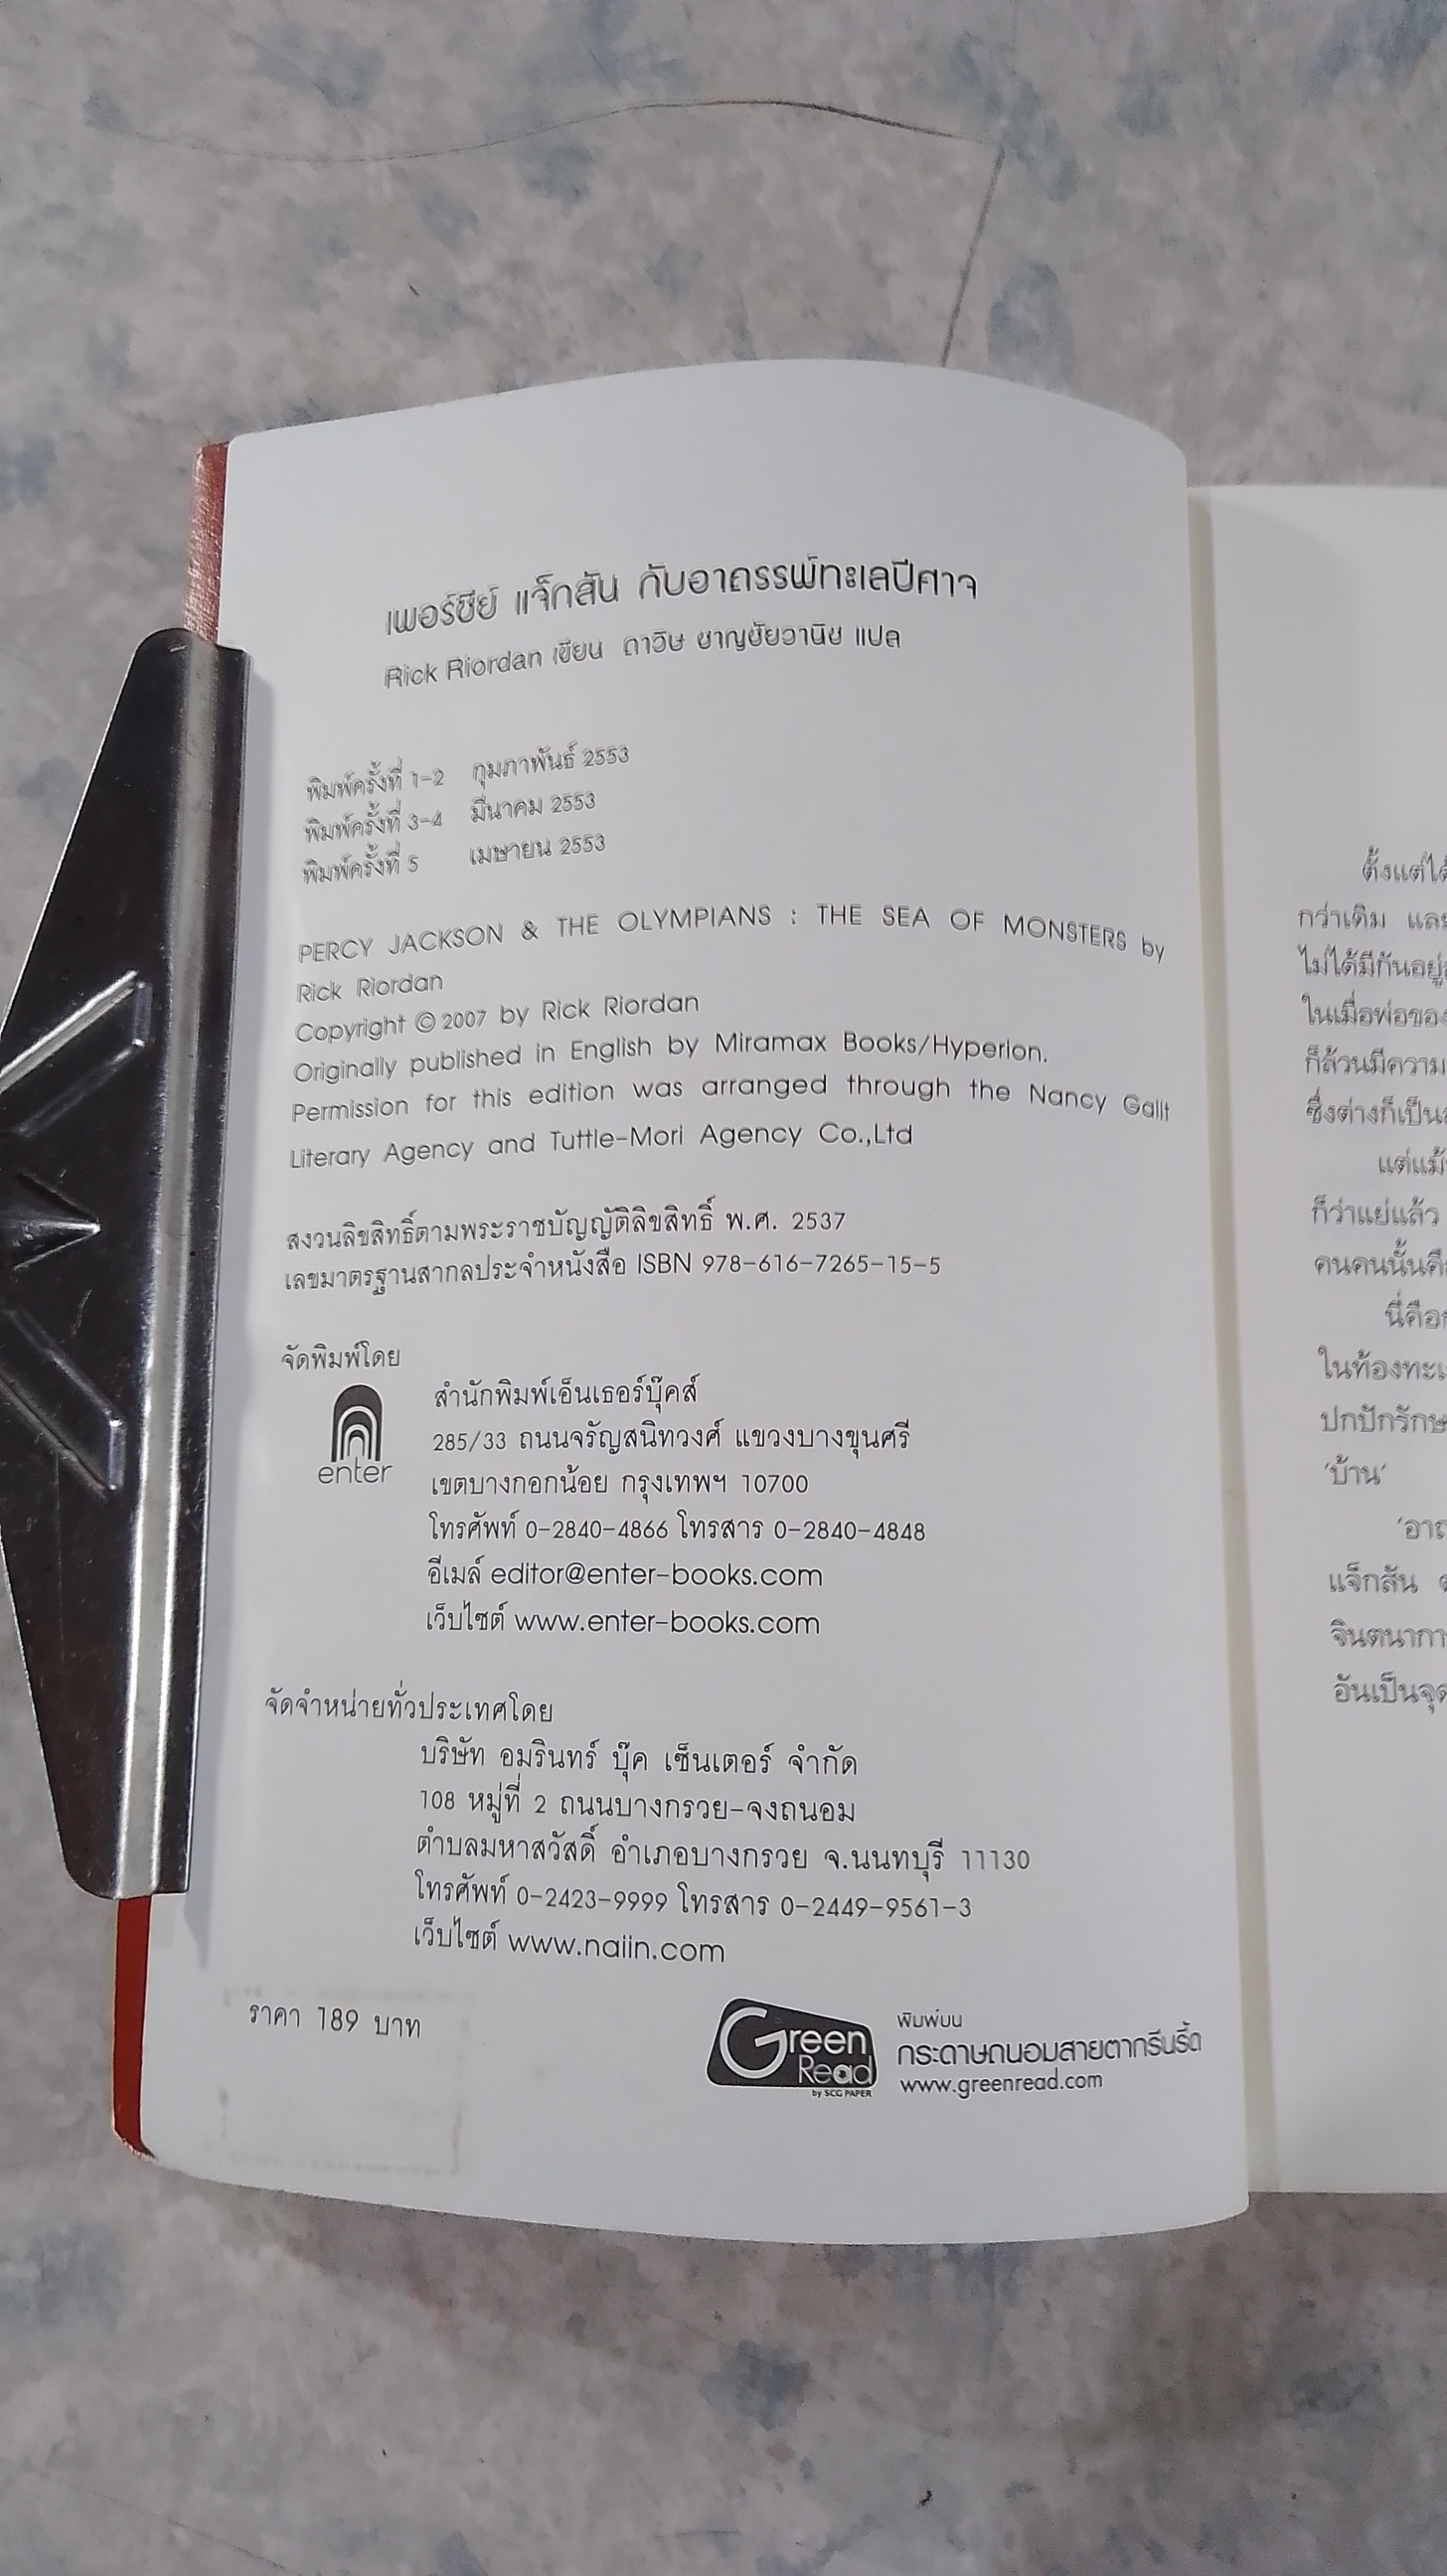 เพอร์ซีย์ แจ็กสัน กับอาถรรพ์ทะเลปีศาจ
Rick Riordan เขียน ดาวิษ ชาญชัยวานิช แปล
พิมพ์ครั้งที่ 1-2 กุมภาพันธ์ 2553
พิมพ์ครั้งที่ 3-4 มีนาคม 2553
พิมพ์ครั้งที่ 5 เมษายน 2553
PERCY JACKSON & THE OLYMPIANS : THE SEA OF MONSTERS by
Rick Riordan
Copyright © 2007 by Rick Riordan
Originally published in English by Miramax Books/Hyperion.
Permission for this edition was arranged through the Nancy Gallt
Literary Agency and Tuttle-Mori Agency Co.,Ltd
สงวนลิขสิทธิ์ตามพระราชบัญญัติลิขสิทธิ์ พ.ศ. 2537
เลขมาตรฐานสากลประจำหนังสือ ISBN 978-616-7265-15-5
จัดพิมพ์โดย
enter
สำนักพิมพ์เอ็นเธอร์บุ๊คส์
285/33 ถนนจรัญสนิทวงศ์ แขวงบางขุนศรี
เขตบางกอกน้อย กรุงเทพฯ 10700
โทรศัพท์ 0-2840-4866 โทรสาร 0-2840-4848
อีเมล์ editor@enter-books.com
เว็บไซต์ www.enter-books.com
จัดจำหน่ายทั่วประเทศโดย
บริษัท อมรินทร์ บุ๊ค เซ็นเตอร์ จำกัด
108 หมู่ที่ 2 ถนนบางกรวย-จงถนอม
ตำบลมหาสวัสดิ์ อำเภอบางกรวย จ.นนทบุรี 11130
โทรศัพท์ 0-2423-9999 โทรสาร 0-2449-9561-3
เว็บไซต์ www.naiin.com
ราคา 189 บาท
Green
Read
by SCG PAPER
พิมพ์บน
กระดาษถนอมสายตากรีนรี้ด
www.greenread.com
ตั้งแต่ได้
กว่าเดิม
ไม่ได้มีกันอยู่
ในเมื่อพ่อของ
ก็ล้วนมีความ
ซึ่งต่างก็เป็น
แต่แม้
ก็ว่าแย่แล้ว
คนคนนั้นคือ
นี่คือ
ในท้องทะเ
ปกปักรักษ
'บ้าน'
'อาถ
แจ็กสัน
จินตนากา
อันเป็นจุด